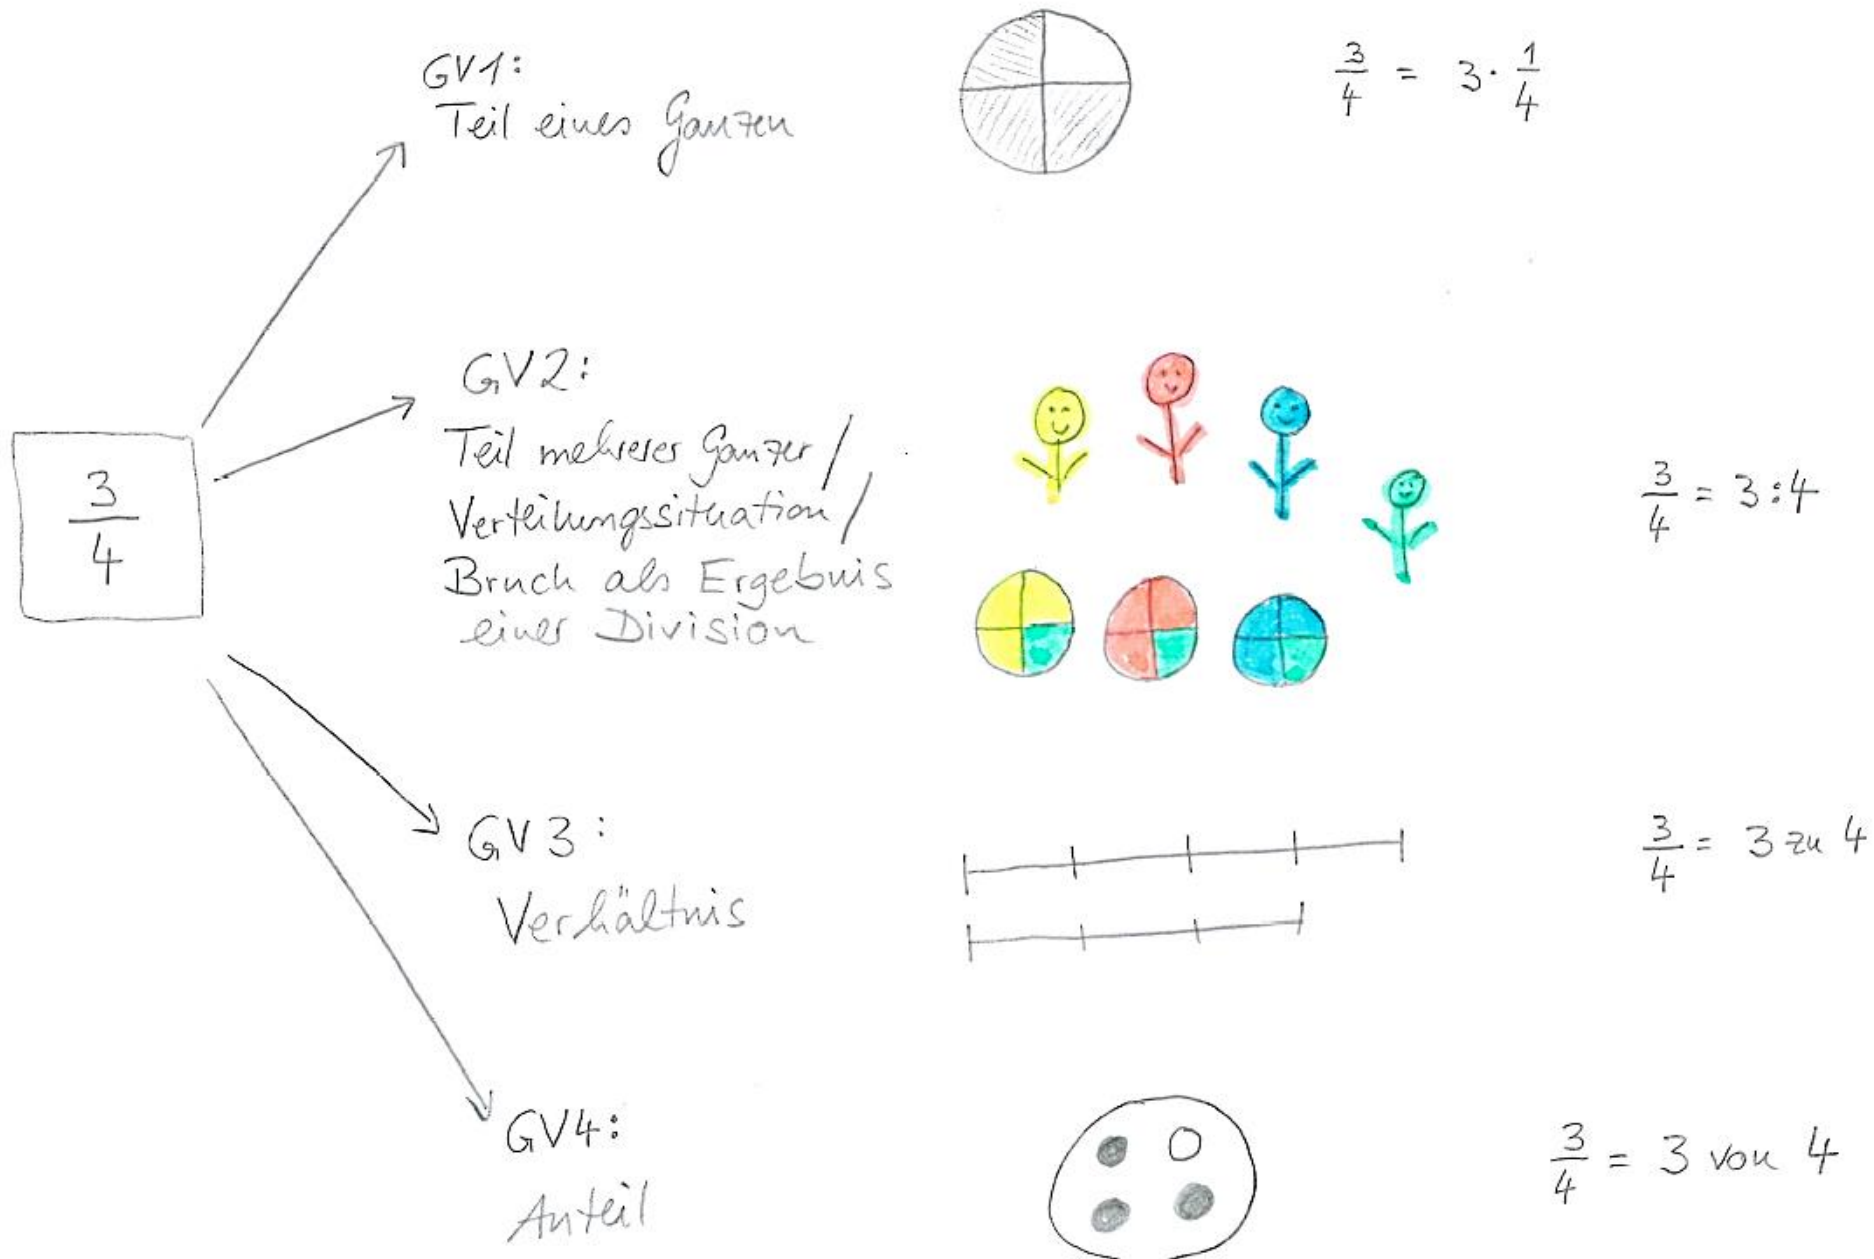 3/4
GV1:
Teil eines Ganzen
3/4 = 3 · 1/4
GV2:
Teil mehrerer Ganzer /
Verteilungssituation /
Bruch als Ergebnis
einer Division
3/4 = 3:4
GV3:
Verhältnis
3/4 = 3 zu 4
GV4:
Anteil
3/4 = 3 von 4